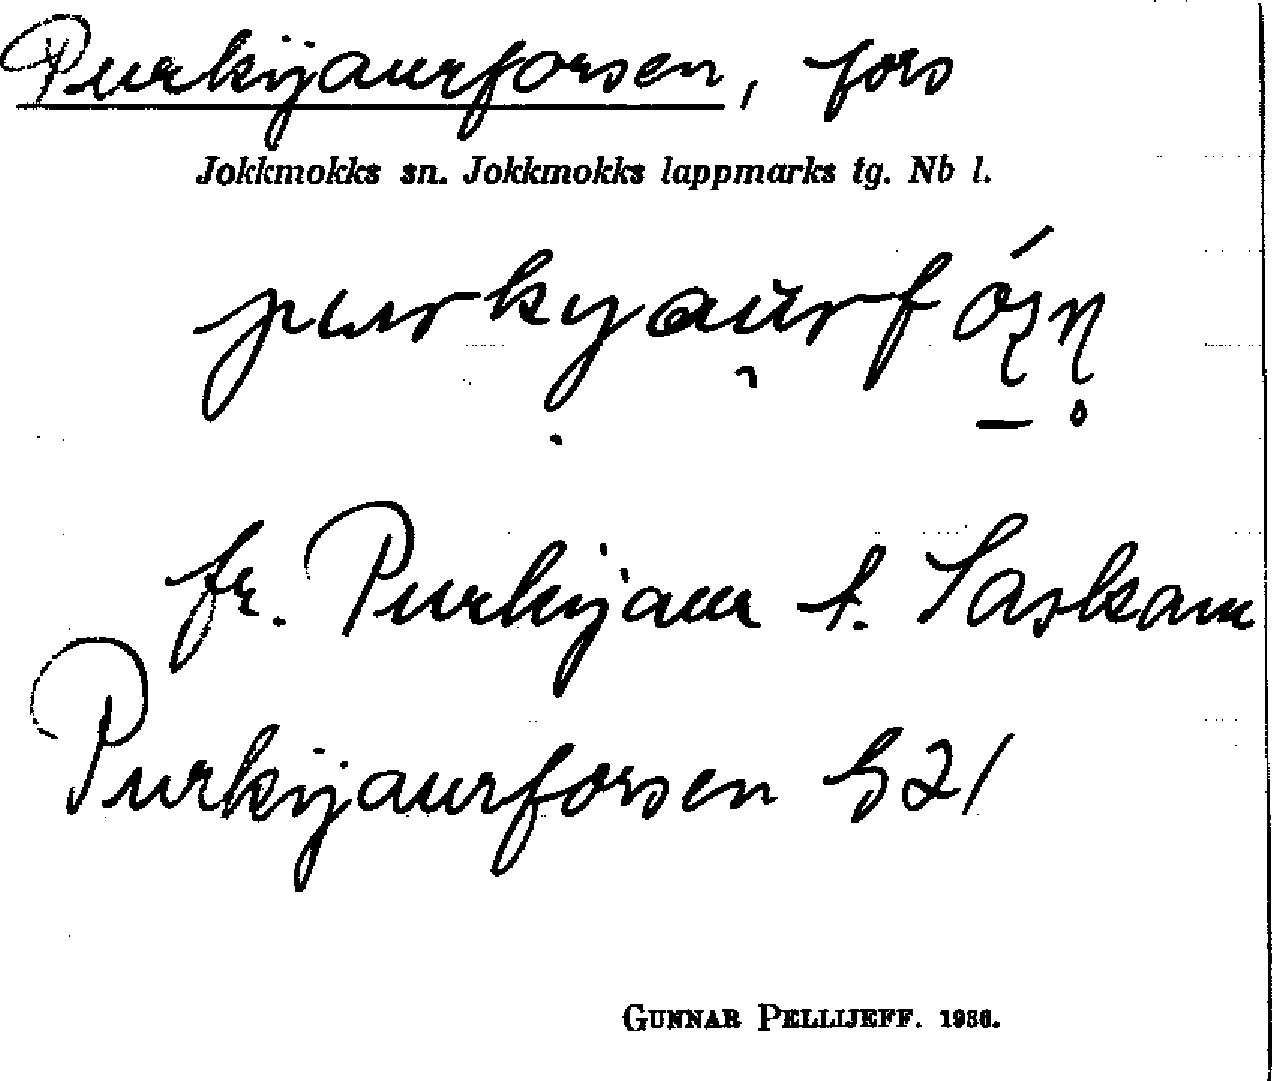 Purkijaurforsen, fors
Jokkmokks sn. Jokkmokks lappmarks tg. Nb l.
fr. Purkijaur t. Saskam
Purkijaurforsen G 21
GUNNAR PELLIJEFF. 1936.